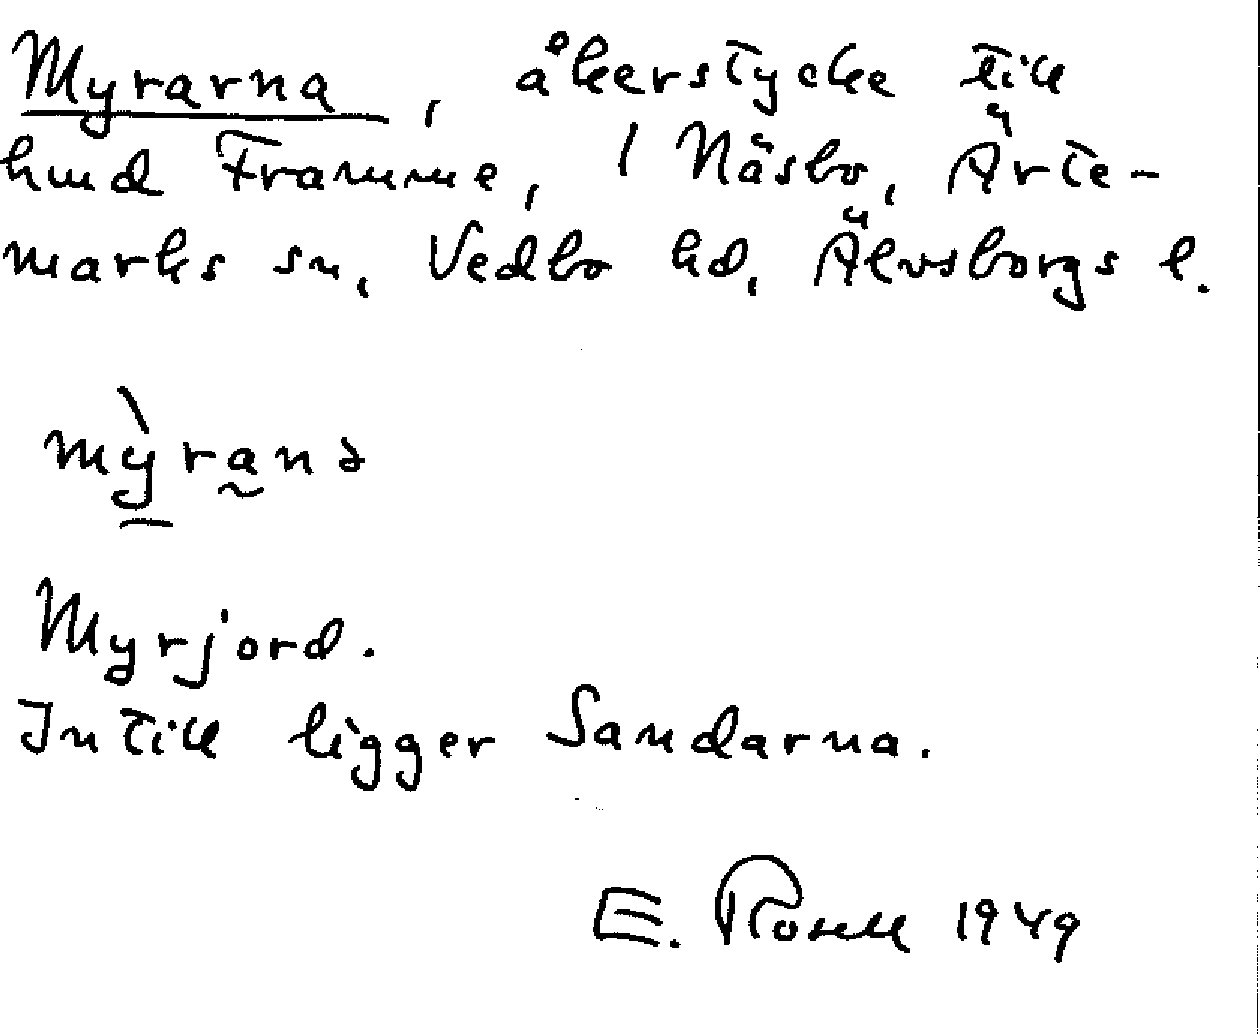 Myrarna, åkerstycke till
hmd Framme, 1 Näsbo, Ärte-
marks sn, Vedbo hd, Älvsborgs l.
mỳranə
Myrjord.
Intill ligger Sandarna.
E. Rosell 1949